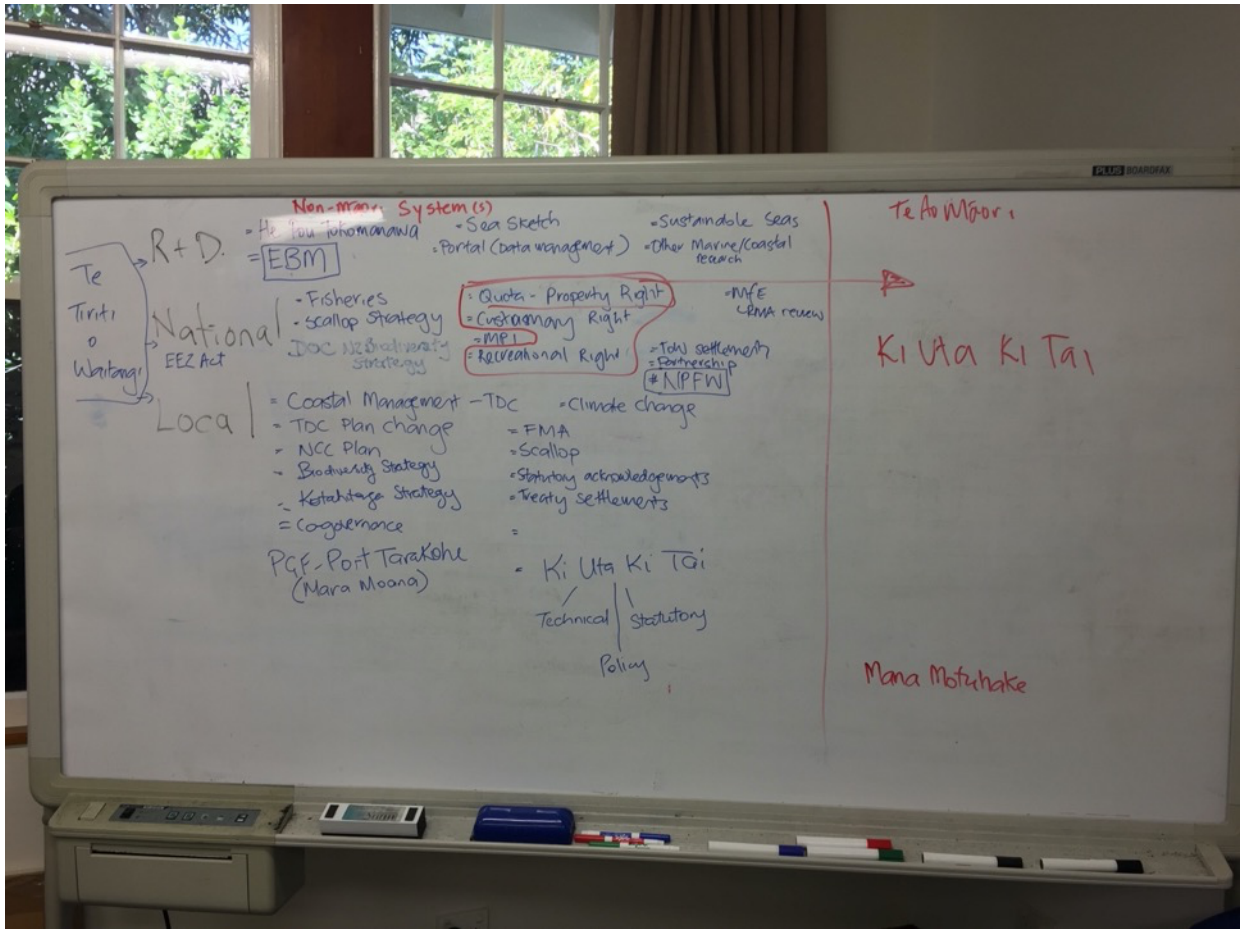 PLUS BOARDFAX
Non-maori System(s)
Te
Tiriti
o
Waitangi
R + D.
= He Pou Tokomanawa
= EBM
= Sea Sketch
= Portal (Data management)
= Sustainable Seas
= Other Marine/Coastal
research
National
EEZ Act
- Fisheries
- Scallop Strategy
DOC NZ Biodiversity
Strategy
= Quota - Property Right
= Customary Right
= MPI
= Recreational Right
= MfE
RMA review
= ToW settlement
= Partnership
* NPFW
Local
= Coastal Management - TDC
= TDC Plan change
= NCC Plan
- Biodiversity Strategy
- Kotahitanga Strategy
= Co-governance
PGF - Port Tarakohe
(Mara Moana)
= Climate change
= FMA
= Scallop
= Statutory acknowledgements
= Treaty settlements
=
= Ki Uta Ki Tai
Technical
Statutory
Policy
Te Ao Māori
Ki Uta Ki Tai
Mana Motuhake